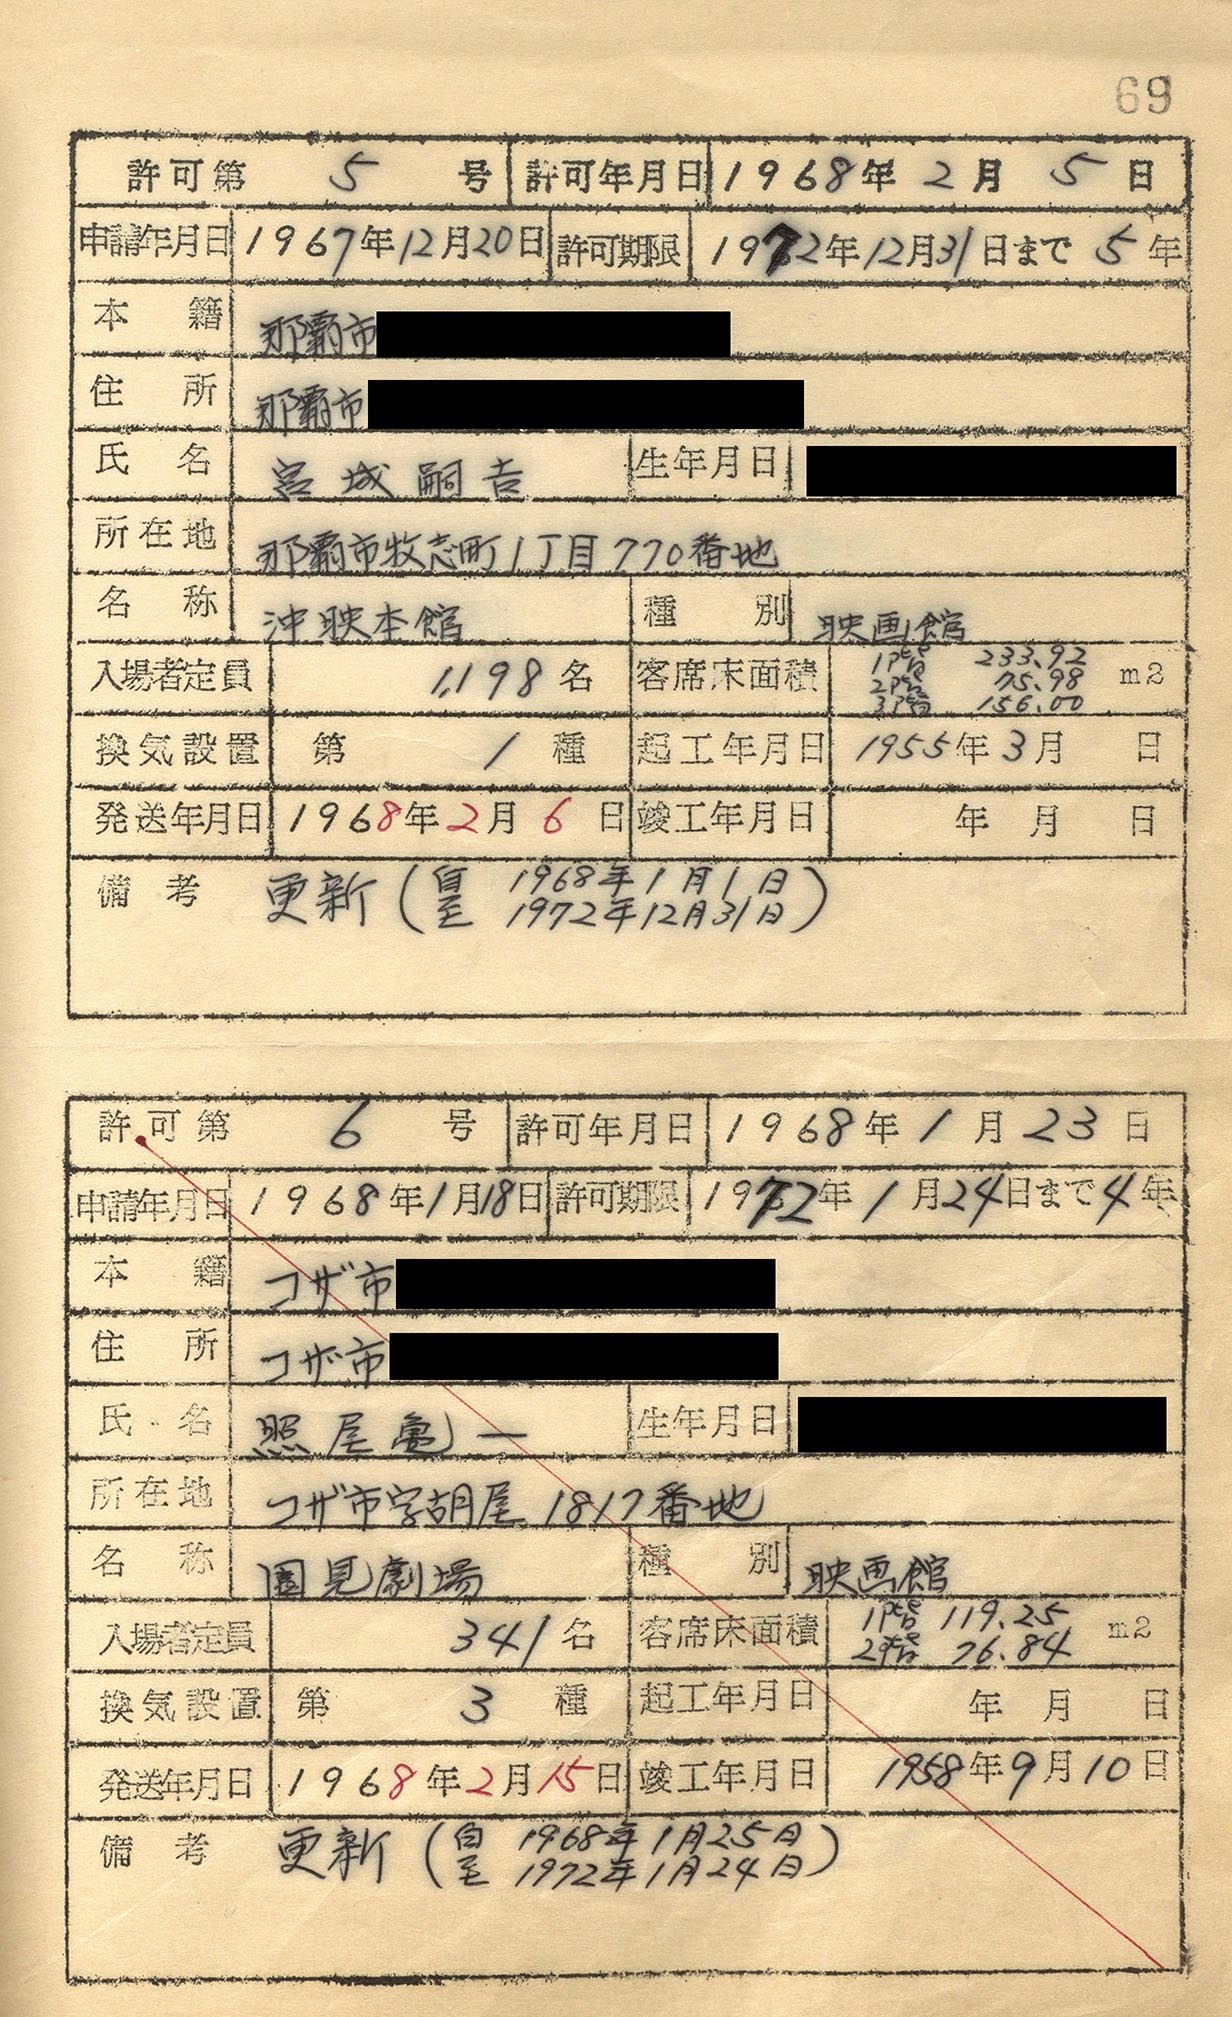 69
許可第 5 号 許可年月日 1968年 2月 5日
申請年月日 1967年12月20日 許可期限 1972年12月31日まで 5年
本籍 那覇市
住所 那覇市
氏名 宮城嗣吉 生年月日
所在地 那覇市牧志町1丁目770番地
名称 沖映本館 種別 映画館
入場者定員 1,198名 客席床面積 1階 233.92 m2
2階 75.98
3階 156.00
換気設置 第 1 種 起工年月日 1955年3月 日
発送年月日 1968年2月6日 竣工年月日 年 月 日
備考 更新(自 1968年1月1日
至 1972年12月31日)
許可第 6 号 許可年月日 1968年1月23日
申請年月日 1968年1月18日 許可期限 1972年1月24日まで4年
本籍 コザ市
住所 コザ市
氏名 照屋亀一 生年月日
所在地 コザ市字胡屋1817番地
名称 園見劇場 種別 映画館
入場者定員 341名 客席床面積 1階 119.25 m2
2階 76.84
換気設置 第 3 種 起工年月日 年 月 日
発送年月日 1968年2月15日 竣工年月日 1958年9月10日
備考 更新(自 1968年1月25日
至 1972年1月24日)